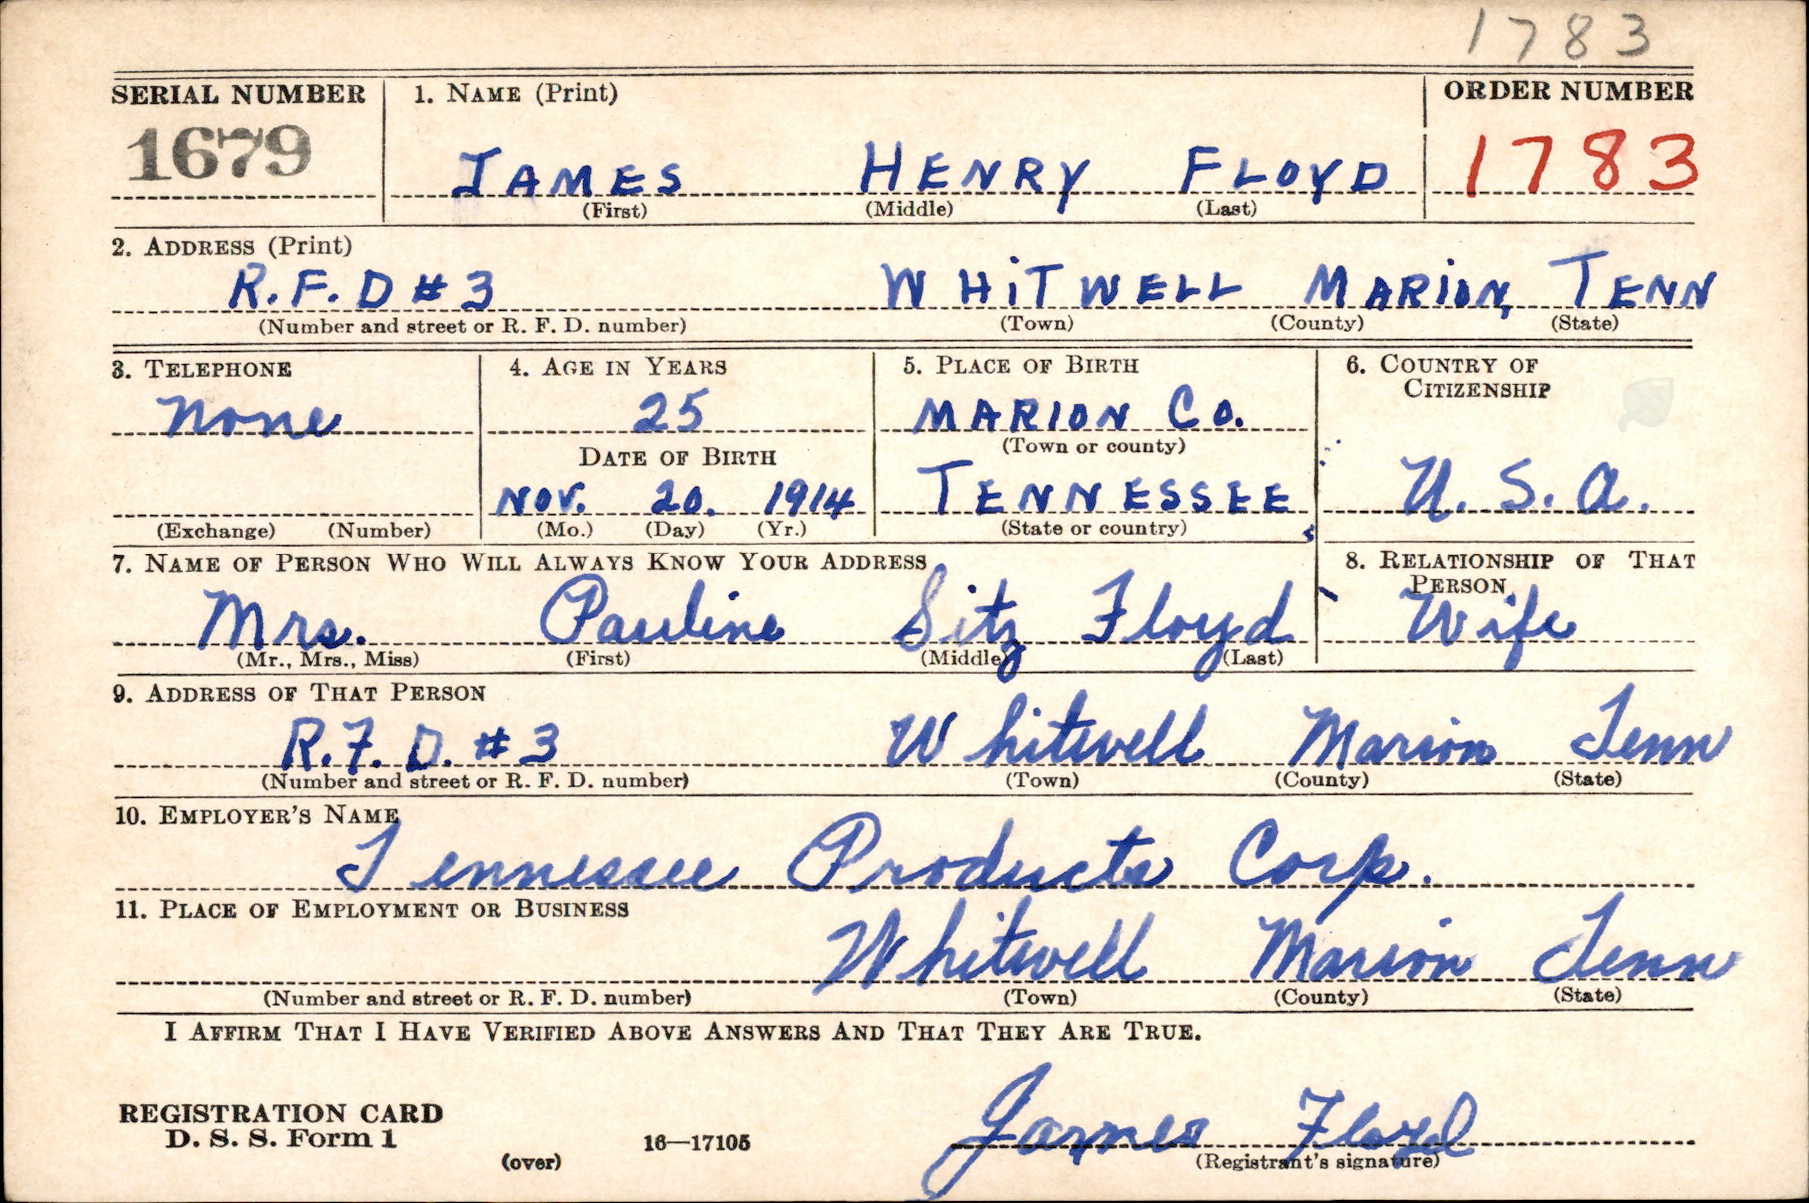 1783
SERIAL NUMBER 1. NAME (Print) ORDER NUMBER
1679 JAMES HENRY FLOYD 1783
(First) (Middle) (Last)
2. ADDRESS (Print)
R.F.D #3 WHITWELL MARION, TENN
(Number and street or R. F. D. number) (Town) (County) (State)
3. TELEPHONE 4. AGE IN YEARS 5. PLACE OF BIRTH 6. COUNTRY OF CITIZENSHIP
None 25 MARION CO.
DATE OF BIRTH (Town or county)
NOV. 20. 1914 TENNESSEE U. S. A.
(Exchange) (Number) (Mo.) (Day) (Yr.) (State or country)
7. NAME OF PERSON WHO WILL ALWAYS KNOW YOUR ADDRESS 8. RELATIONSHIP OF THAT PERSON
Mrs. Pauline Sitz Floyd Wife
(Mr., Mrs., Miss) (First) (Middle) (Last)
9. ADDRESS OF THAT PERSON
R.F.D. #3 Whitwell Marion Tenn
(Number and street or R. F. D. number) (Town) (County) (State)
10. EMPLOYER'S NAME
Tennessee Products Corp.
11. PLACE OF EMPLOYMENT OR BUSINESS
Whitwell Marion Tenn
(Number and street or R. F. D. number) (Town) (County) (State)
I AFFIRM THAT I HAVE VERIFIED ABOVE ANSWERS AND THAT THEY ARE TRUE.
REGISTRATION CARD
D. S. S. Form 1 16—17105 James Floyd
(over) (Registrant's signature)